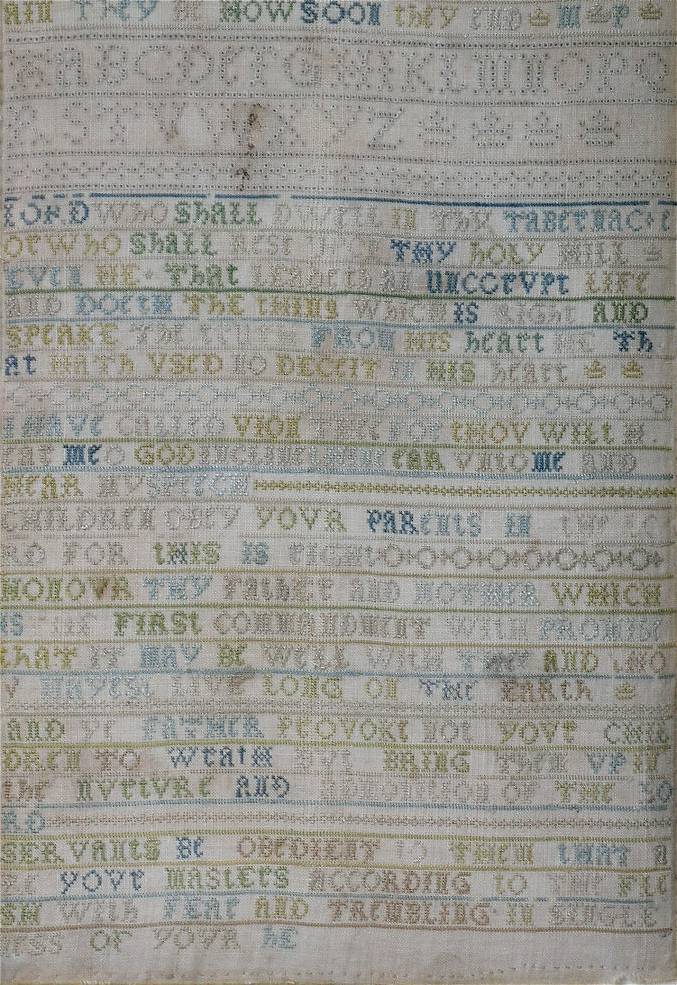 THEY BE HOW SOON they END M P
ABCDEFGHIKLMNOPQ
RSTVWXYZ
LORD WHO ShALL DWELL IN THY TABERNACLE
OrWhO ShALL REST THY hOLY HILL
EVEN HE ThAt LEADETH AN UNCORVPt LIFE
AND DOETH THE THING WHICH IS RIGHt AND
SPEAKE THE FROM HIS heart HE Th
At HATH VSED NO DECEIT IN HIS heart
I HAVE CALLED VPON THEE FOR tHOV WILt H
EAR ME O GOD INCLINE THINE EAR VNTO ME AND
HEAR MY SPEECH
CHILDREN OBEY YOVR PARENtS IN THE LO
RD FOR tHIS IS RIGHt
HONOVR THY FATHER AND MOTHER WHICH
IS THE FIRSt COMMANDMENT WITH PROMISE
tHAT IT MAY BE WELL WITH THEE AND tHO
V MAYESt LIVE LONG ON THE EARTH
AND YE FATHER PROVOKE NOt YOVR CHIL
DREN TO WRATH BVt BRING THEM VP IN
the NVRtVRE AND OF THE LO
RD
SERVANtS BE OBEDIENT TO THEM tHAT A
RE YOVR MASTERS ACCORDING tO THE FLE
SH WITH FEAR AND TREMBLING IN SINGLE
NESS OF YOVR HE